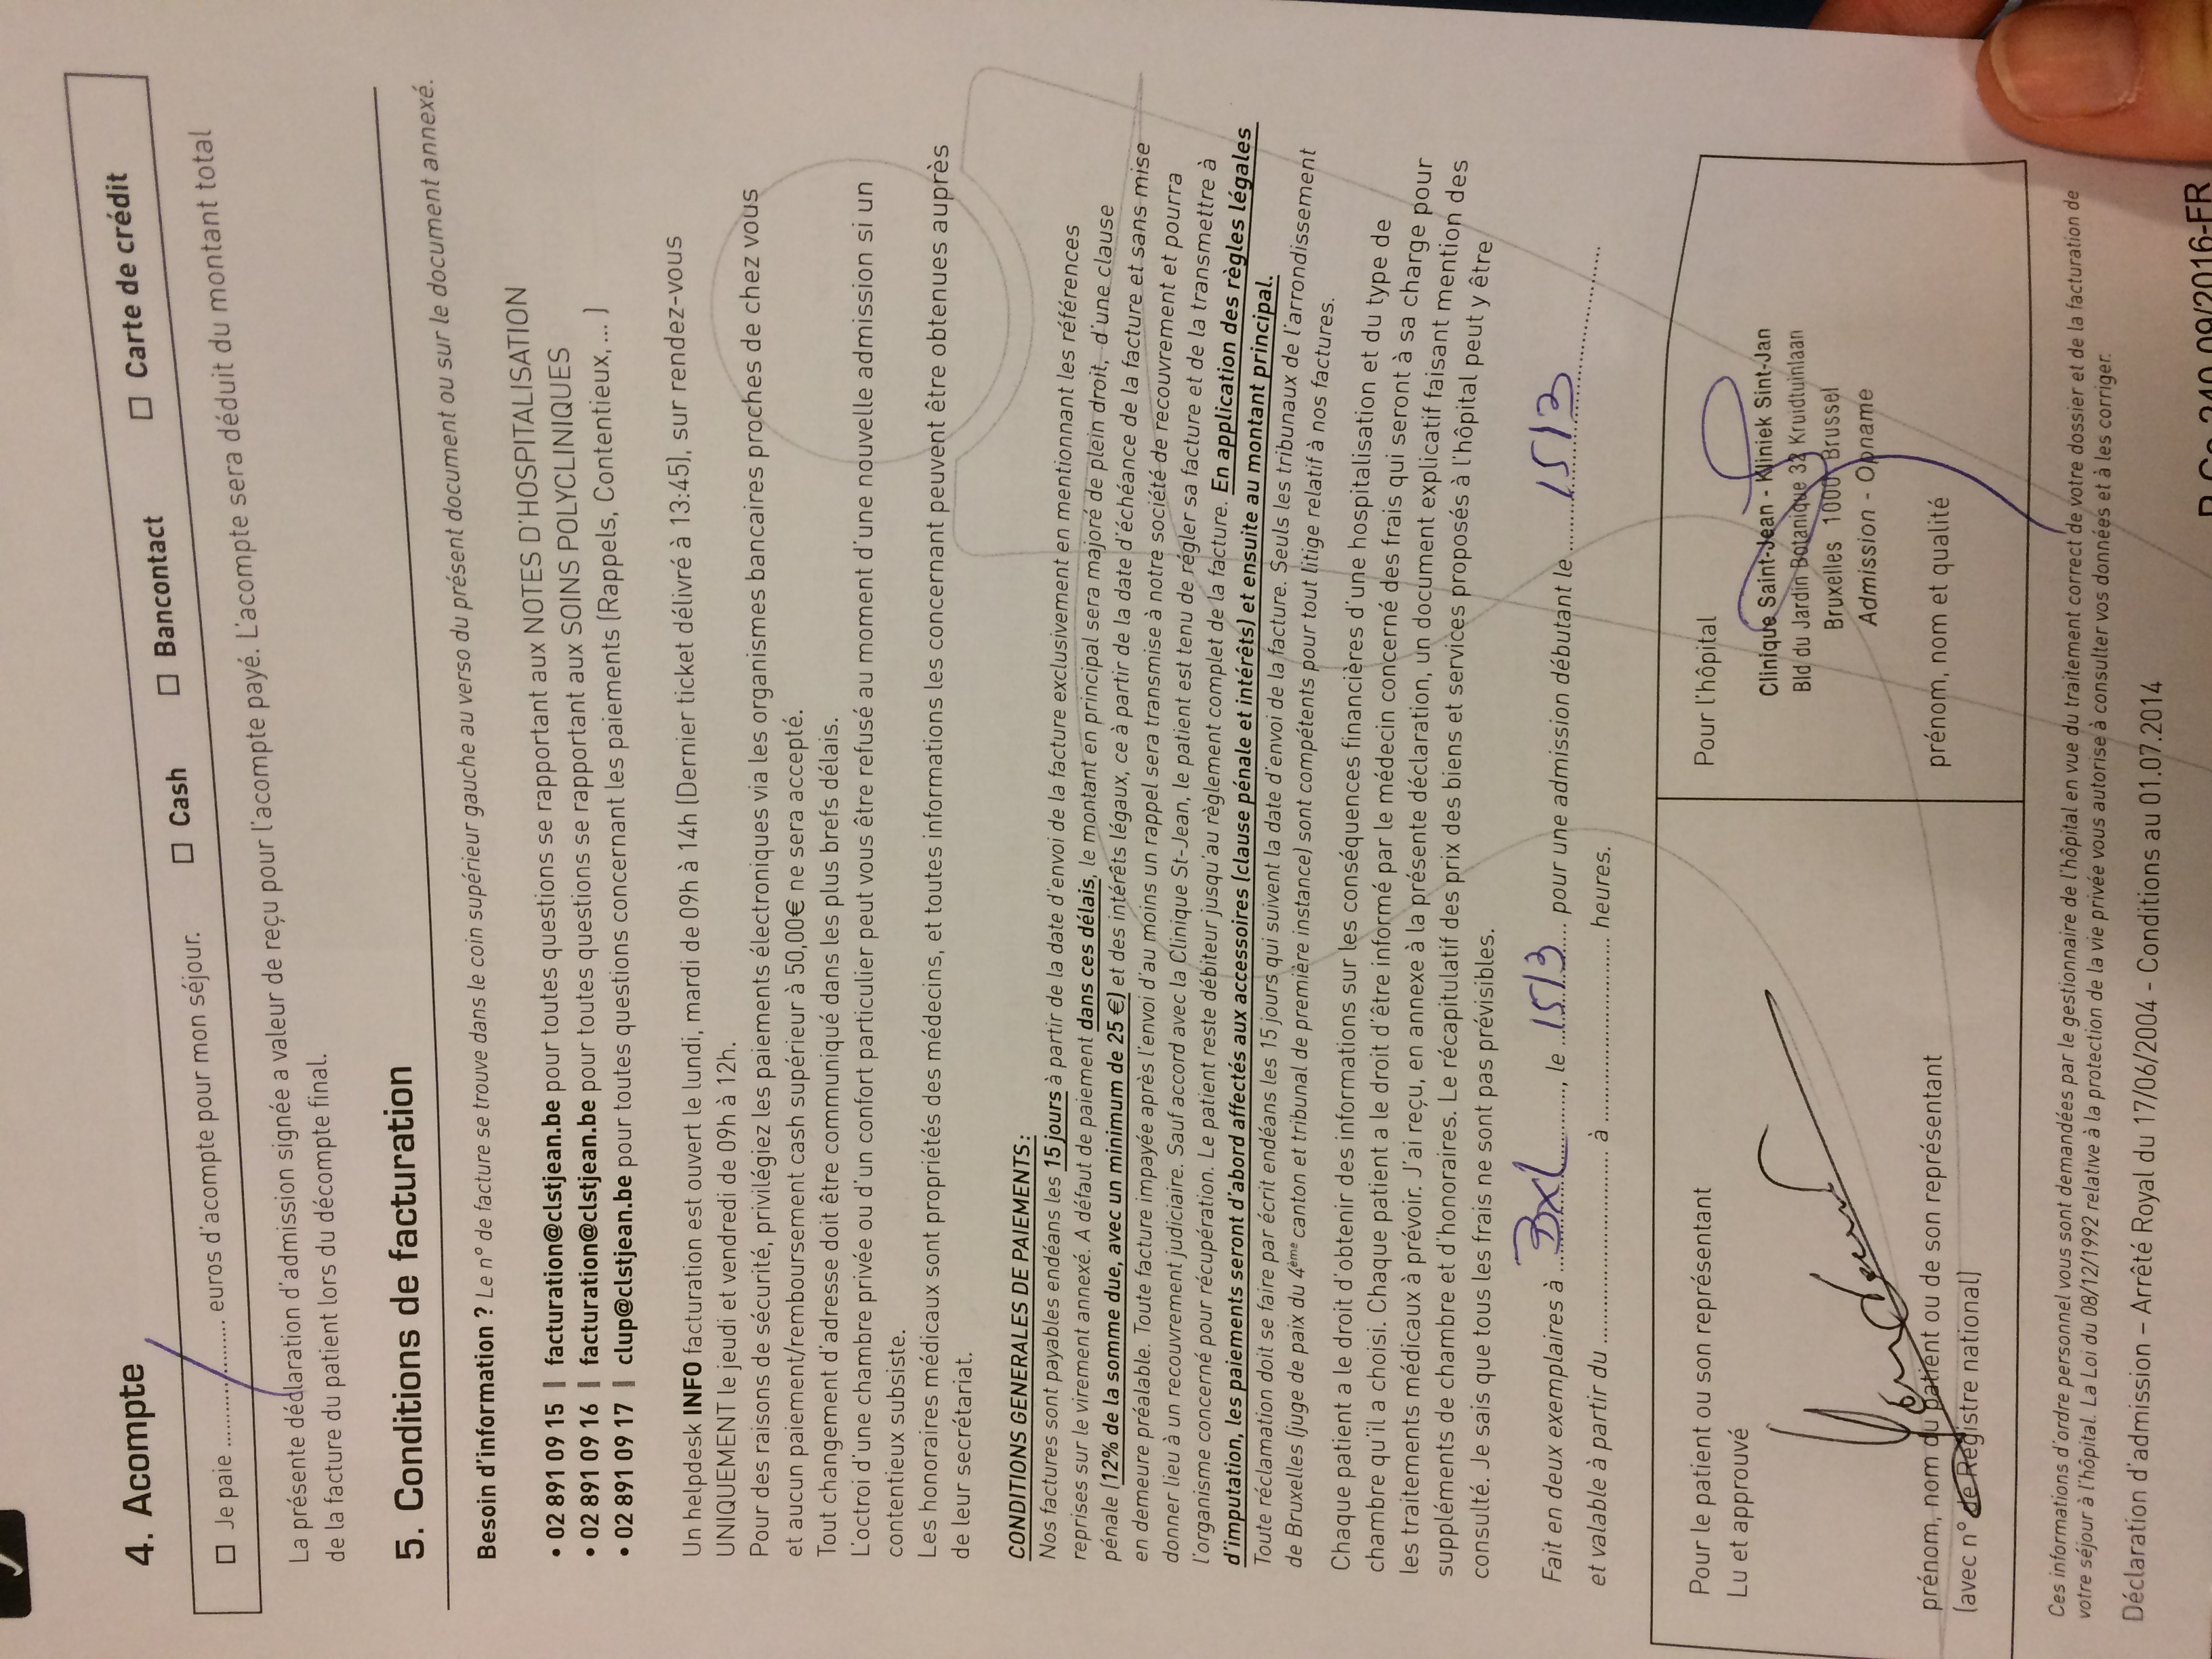 4. Acompte
☐ Je paie ........................ euros d'acompte pour mon séjour. ☐ Cash ☐ Bancontact ☐ Carte de crédit
La présente déclaration d'admission signée a valeur de reçu pour l'acompte payé. L'acompte sera déduit du montant total
de la facture du patient lors du décompte final.
5. Conditions de facturation
Besoin d'information ? Le n° de facture se trouve dans le coin supérieur gauche au verso du présent document ou sur le document annexé.
• 02 891 09 15 | facturation@clstjean.be pour toutes questions se rapportant aux NOTES D'HOSPITALISATION
• 02 891 09 16 | facturation@clstjean.be pour toutes questions se rapportant aux SOINS POLYCLINIQUES
• 02 891 09 17 | clup@clstjean.be pour toutes questions concernant les paiements (Rappels, Contentieux, ... )
Un helpdesk INFO facturation est ouvert le lundi, mardi de 09h à 14h (Dernier ticket délivré à 13:45), sur rendez-vous
UNIQUEMENT le jeudi et vendredi de 09h à 12h.
Pour des raisons de sécurité, privilégiez les paiements électroniques via les organismes bancaires proches de chez vous
et aucun paiement/remboursement cash supérieur à 50,00€ ne sera accepté.
Tout changement d'adresse doit être communiqué dans les plus brefs délais.
L'octroi d'une chambre privée ou d'un confort particulier peut vous être refusé au moment d'une nouvelle admission si un
contentieux subsiste.
Les honoraires médicaux sont propriétés des médecins, et toutes informations les concernant peuvent être obtenues auprès
de leur secrétariat.
CONDITIONS GENERALES DE PAIEMENTS :
Nos factures sont payables endéans les 15 jours à partir de la date d'envoi de la facture exclusivement en mentionnant les références
reprises sur le virement annexé. A défaut de paiement dans ces délais, le montant en principal sera majoré de plein droit, d'une clause
pénale (12% de la somme due, avec un minimum de 25 €) et des intérêts légaux, ce à partir de la date d'échéance de la facture et sans mise
en demeure préalable. Toute facture impayée après l'envoi d'au moins un rappel sera transmise à notre société de recouvrement et pourra
donner lieu à un recouvrement judiciaire. Sauf accord avec la Clinique St-Jean, le patient est tenu de régler sa facture et de la transmettre à
l'organisme concerné pour récupération. Le patient reste débiteur jusqu'au règlement complet de la facture. En application des règles légales
d'imputation, les paiements seront d'abord affectés aux accessoires (clause pénale et intérêts) et ensuite au montant principal.
Toute réclamation doit se faire par écrit endéans les 15 jours qui suivent la date d'envoi de la facture. Seuls les tribunaux de l'arrondissement
de Bruxelles (juge de paix du 4ème canton et tribunal de première instance) sont compétents pour tout litige relatif à nos factures.
Chaque patient a le droit d'obtenir des informations sur les conséquences financières d'une hospitalisation et du type de
chambre qu'il a choisi. Chaque patient a le droit d'être informé par le médecin concerné des frais qui seront à sa charge pour
les traitements médicaux à prévoir. J'ai reçu, en annexe à la présente déclaration, un document explicatif faisant mention des
suppléments de chambre et d'honoraires. Le récapitulatif des prix des biens et services proposés à l'hôpital peut y être
consulté. Je sais que tous les frais ne sont pas prévisibles.
Fait en deux exemplaires à Bxl, le 15/3 pour une admission débutant le 15/3
et valable à partir du ................................ à ................................ heures.
Pour le patient ou son représentant
Lu et approuvé
prénom, nom du patient ou de son représentant
(avec n° de Registre national)
Pour l'hôpital
Clinique Saint-Jean - Kliniek Sint-Jan
Bld du Jardin Botanique 32 Kruidtuinlaan
Bruxelles 1000 Brussel
Admission - Opname
prénom, nom et qualité
Ces informations d'ordre personnel vous sont demandées par le gestionnaire de l'hôpital en vue du traitement correct de votre dossier et de la facturation de
votre séjour à l'hôpital. La Loi du 08/12/1992 relative à la protection de la vie privée vous autorise à consulter vos données et à les corriger.
Déclaration d'admission – Arrêté Royal du 17/06/2004 - Conditions au 01.07.2014
09/2016-FR